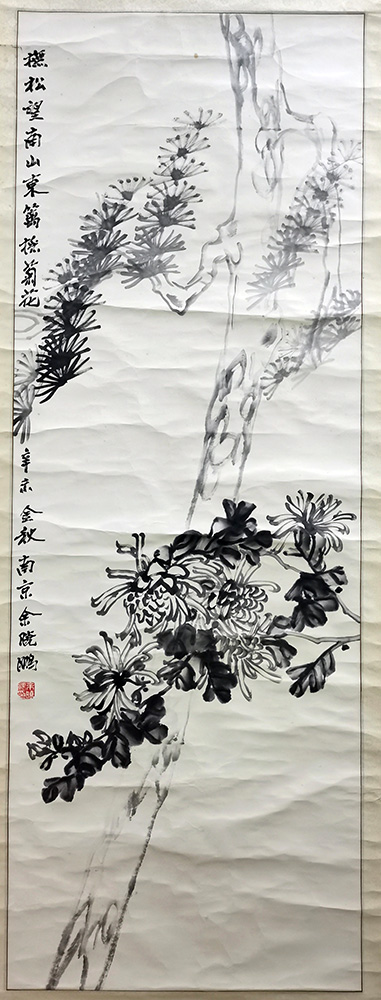 撫松望南山東籬採菊花
辛未金秋南京余曉鵬